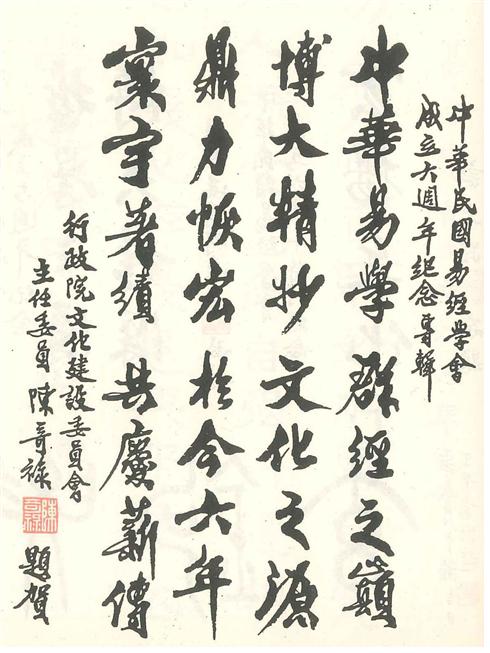 中華民國易經學會
成立六週年紀念專輯
中華易學群經之巔
博大精妙文化之源
鼎力恢宏於今六年
寰宇著績共慶薪傳
行政院文化建設委員會
主任委員陳奇祿
題賀